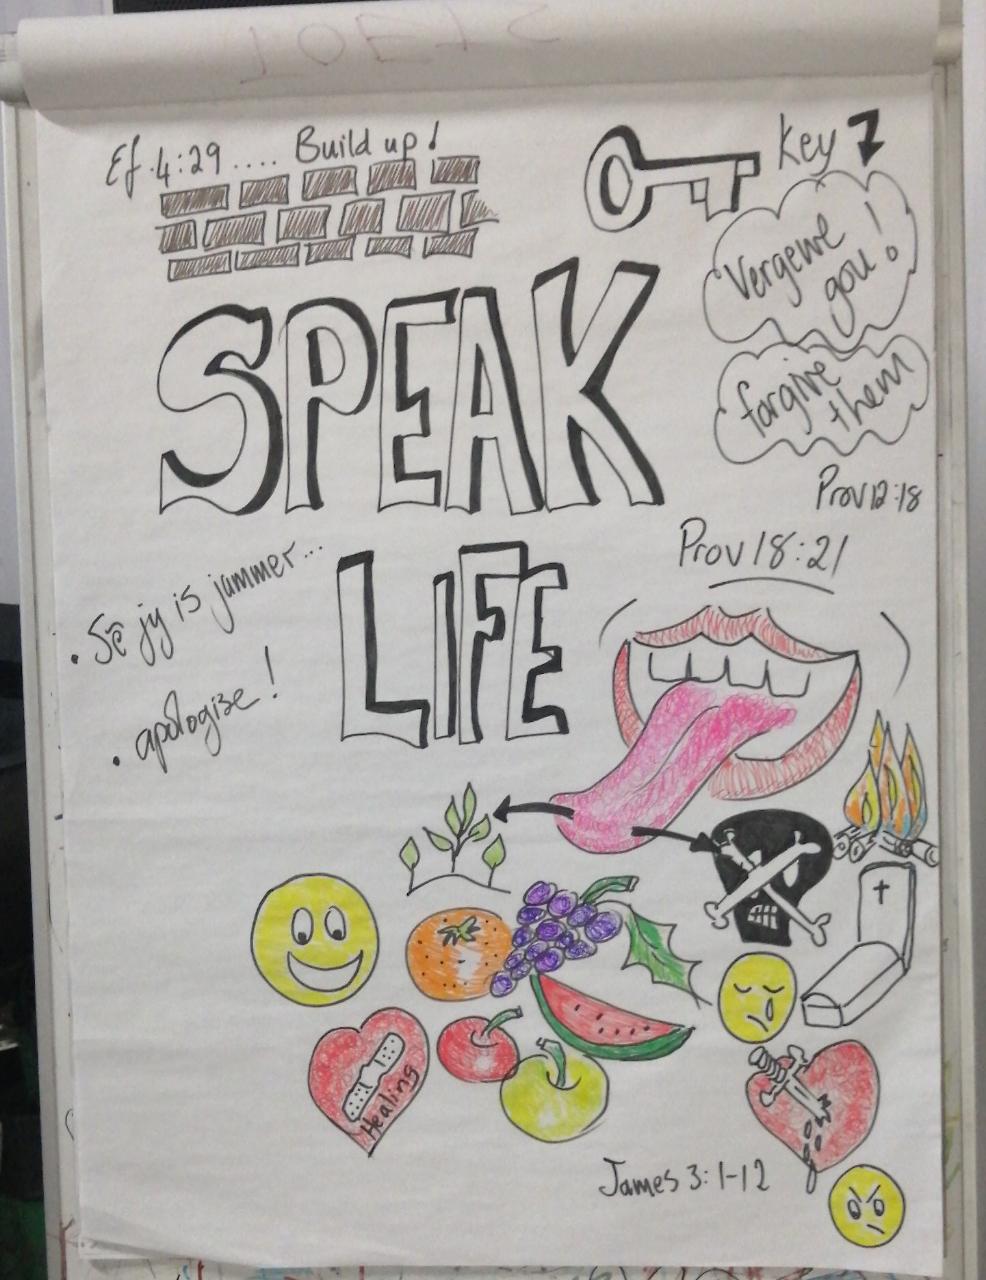 Ef.4:29 .... Build up!
Key 7
Vergewe
gou!
forgive
them
SPEAK
Prov 12:18
Prov 18:21
LIFE
• Sê jy is jammer...
• apologise!
Healing
James 3:1-12